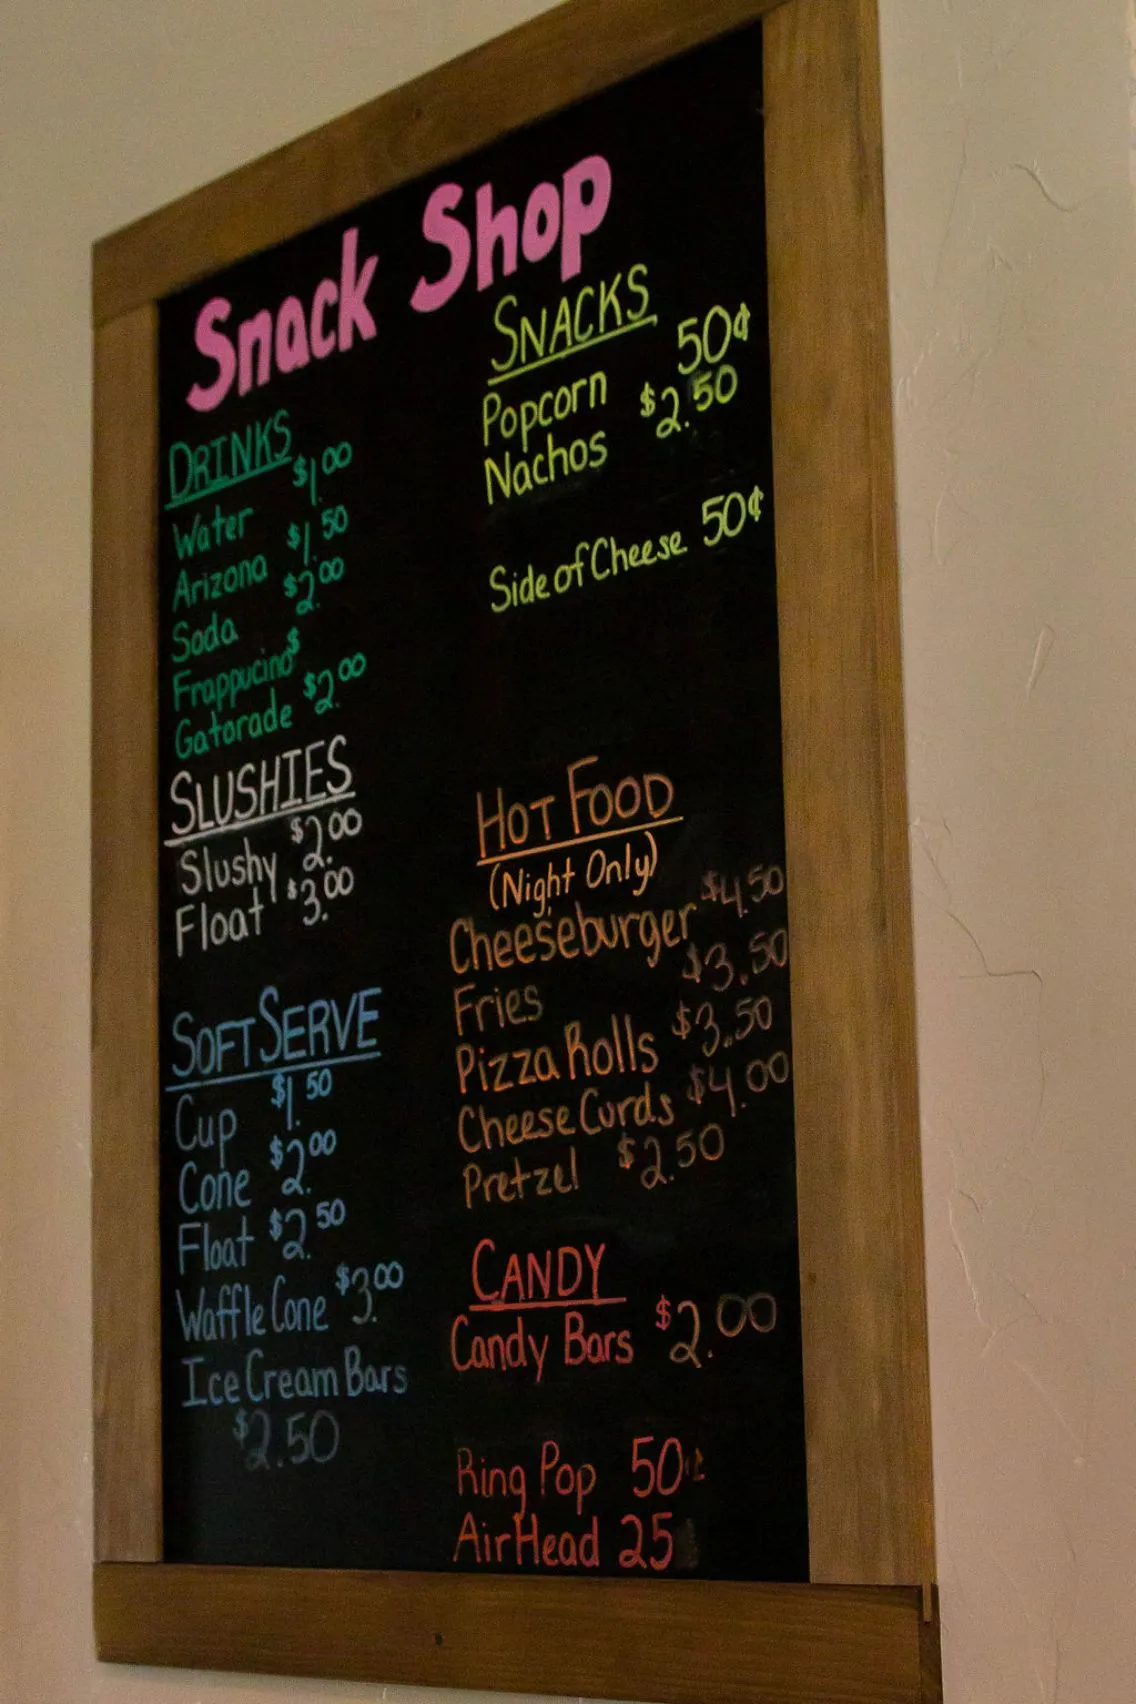 Snack Shop
DRINKS
Water $1.00
Arizona $1.50
Soda $2.00
Frappucino $
Gatorade $2.00
SLUSHIES
Slushy $2.00
Float $3.00
SOFT SERVE
Cup $1.50
Cone $2.00
Float $2.50
Waffle Cone $3.00
Ice Cream Bars
$2.50
SNACKS
Popcorn 50¢
Nachos $2.50
Side of Cheese 50¢
HOT FOOD
(Night Only)
Cheeseburger $4.50
Fries $3.50
Pizza Rolls $3.50
Cheese Curds $4.00
Pretzel $2.50
CANDY
Candy Bars $2.00
Ring Pop 50¢
AirHead 25